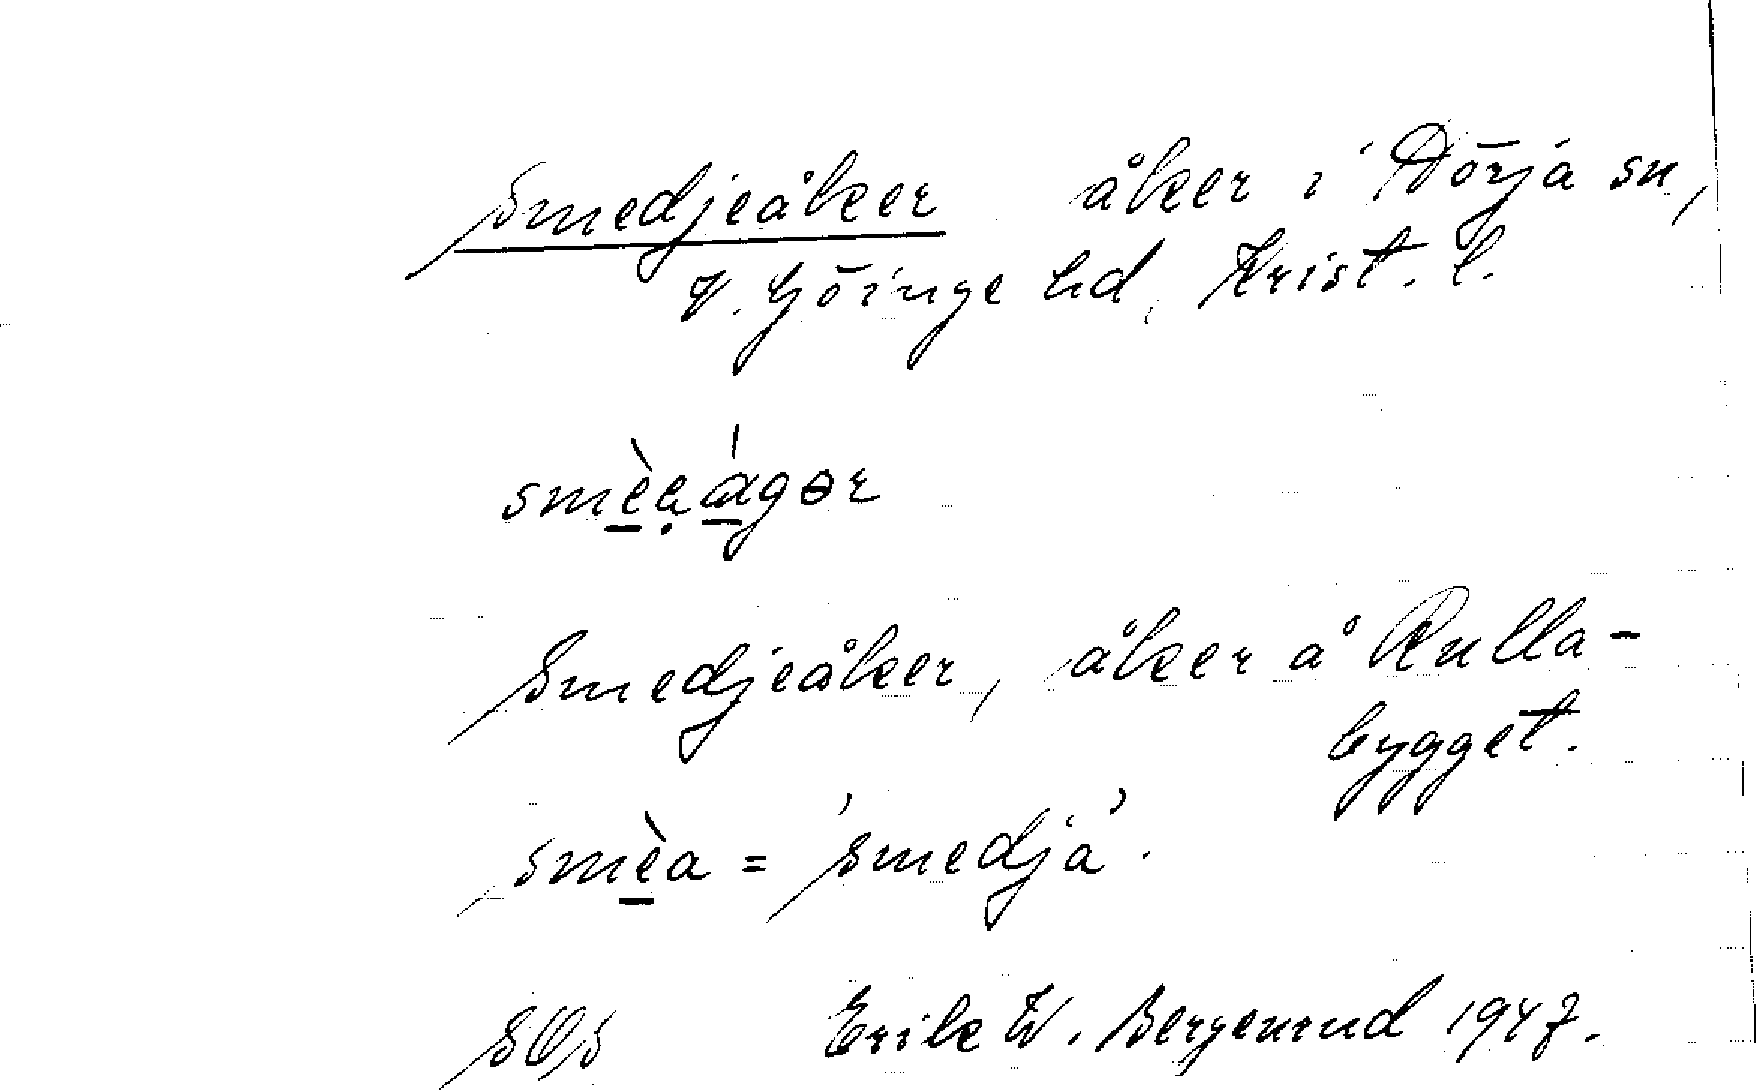 Smedjeåker åker i Dörja sn,
V. Göinge hd, Krist. l.
smèạágər
Smedjeåker, åker å Rulla-
bygget.
smèa = 'smedja'.
SOS Erik W. Bergenrud 1947.